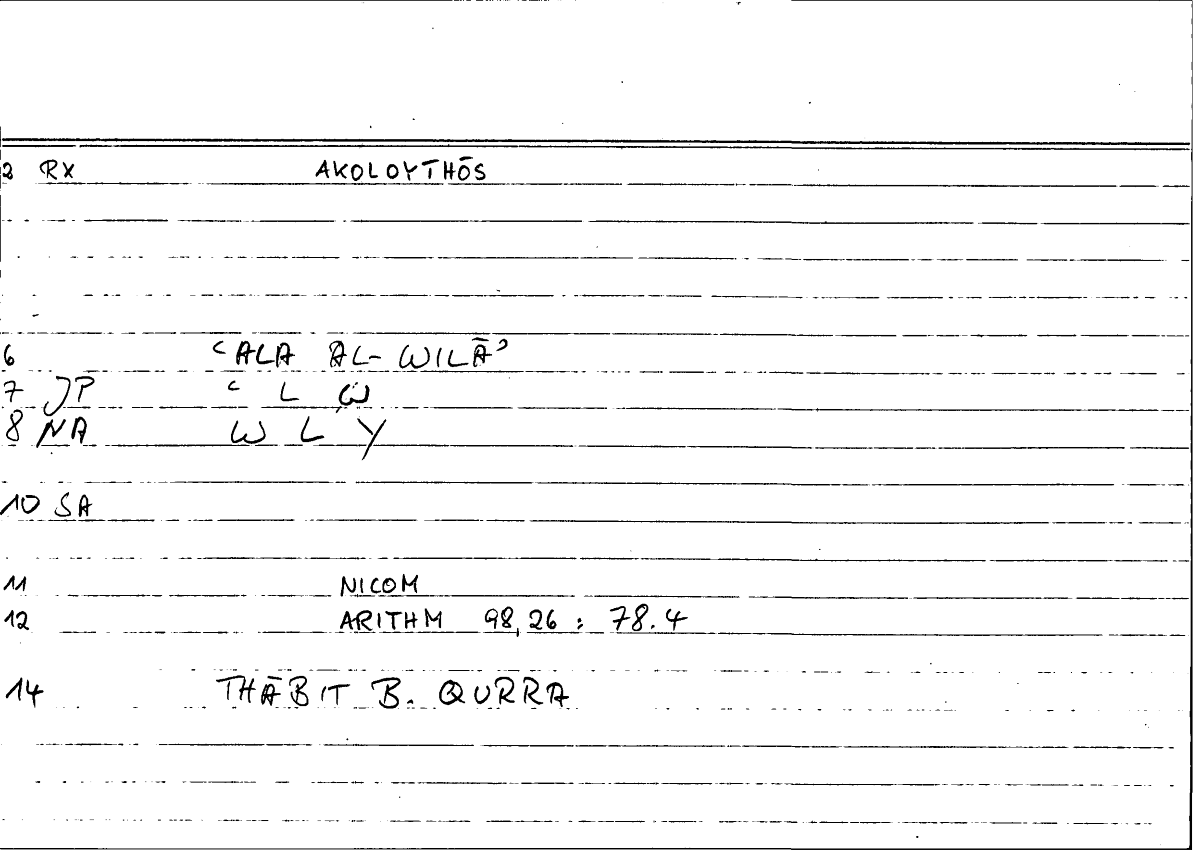 2 RX AKOLOYTHŌS
6 ʿALA AL-WILĀʾ
7 JP ʿ L W
8 NA W L Y
10 SA
11 NICOM
12 ARITHM 98,26 : 78.4
14 THĀBIT B. QURRA